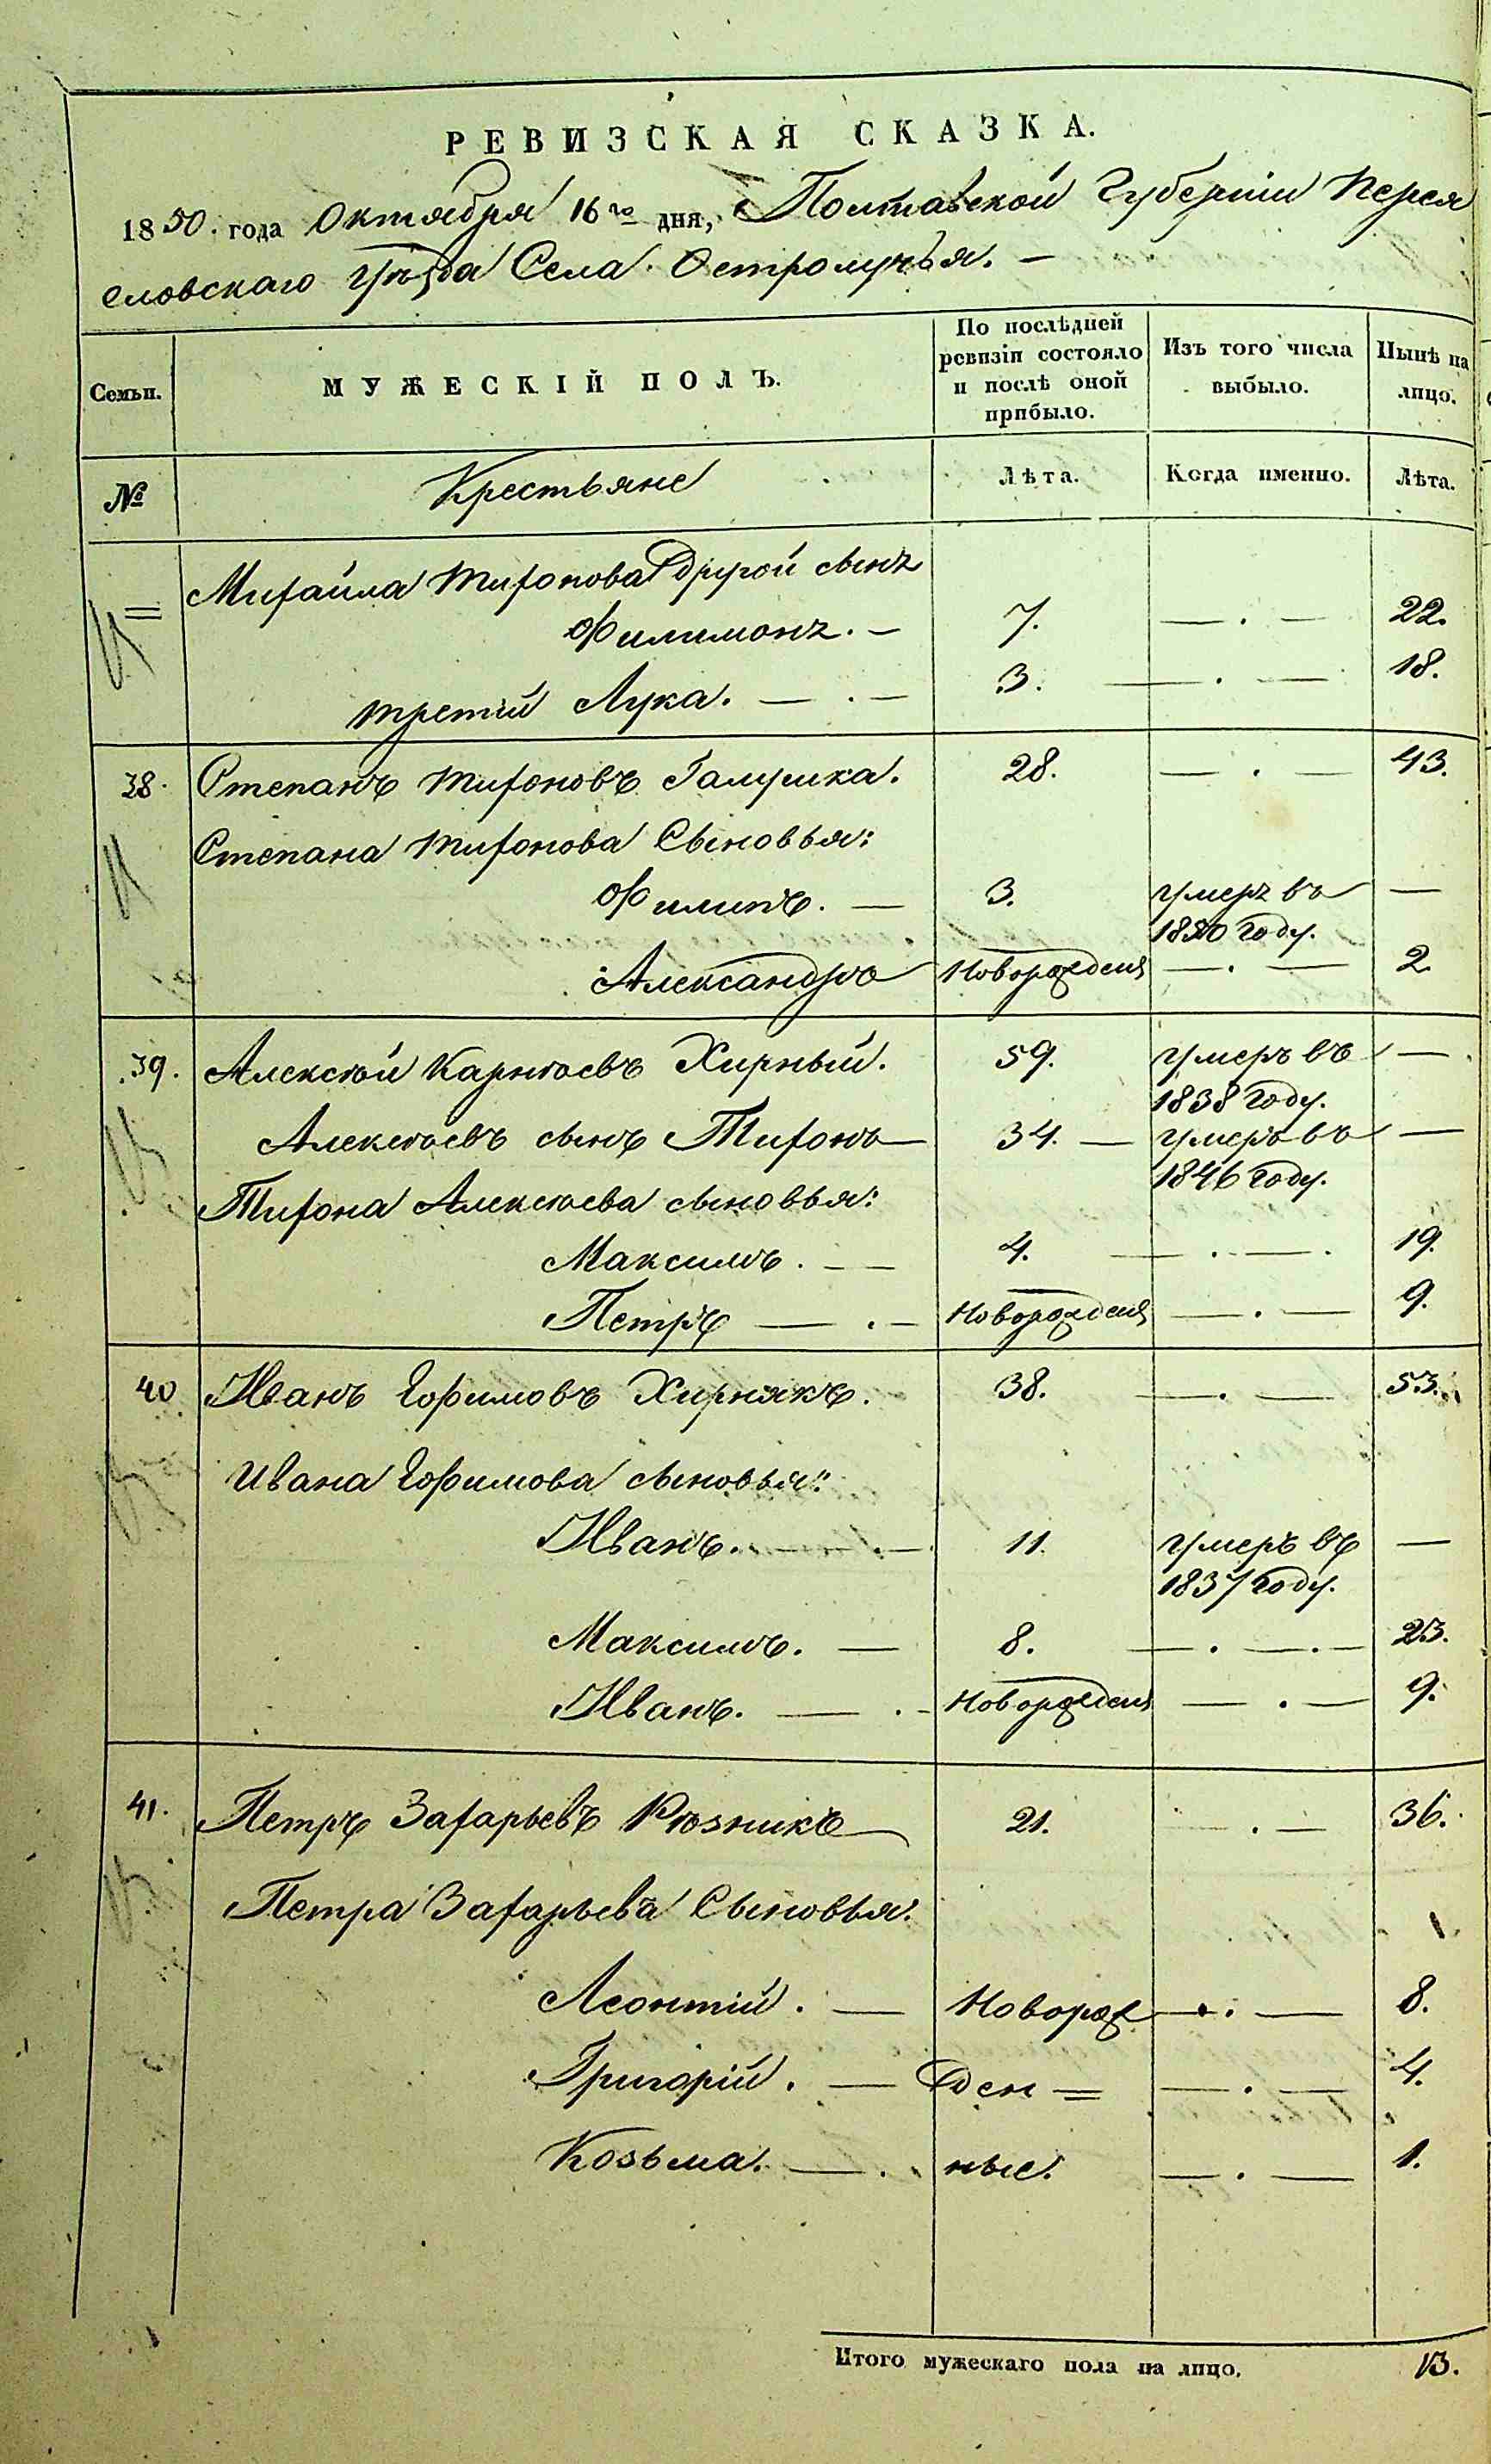 РЕВИЗСКАЯ СКАЗКА.
1850. года Октября 16го дня, Полтавской Губерніи Перея
словскаго Уѣзда Села Остролучья. —
Семьи.
МУЖЕСКІЙ ПОЛЪ.
По послѣдней ревизіи состояло и послѣ оной прибыло.
Изъ того числа выбыло.
Нынѣ на лицо.
№ Крестьяне Лѣта. Когда именно. Лѣта.
Михаила Тихонова другой сынъ
Филимонъ. — 7. — . — 22.
третій Лука. — . — 3. — . — 18.
38. Степанъ Тихоновъ Галушка. 28. — . — 43.
Степана Тихонова Сыновья:
Филипъ. — 3. умеръ въ —
1850 году.
Александръ Новорожденъ — . — 2
39. Алексѣй Карнѣевъ Хирный. 59. умеръ въ —
1838 году.
Алексѣевъ сынъ Тихонъ 34. — умеръ въ —
1846 году.
Тихона Алексѣева сыновья:
Максимъ. — 4. — . — . 19.
Петръ — . — Новорожденъ — . — 9.
40 Иванъ Ефимовъ Хирнякъ. 38. — . — 53.
Ивана Ефимова сыновья:
Иванъ. — . — 11. умеръ въ —
1837 году.
Максимъ. — 8. — . — . — 23.
Иванъ. — . — Новорожденъ — . — 9.
41. Петръ Захарьевъ Рѣзникъ 21. — . — 36.
Петра Захарьева Сыновья:
Леонтій. — Новорож — . — 8.
Григорій. — ден = — . — 4.
Козьма. — . ные. — . — 1.
Итого мужескаго пола на лицо. 13.